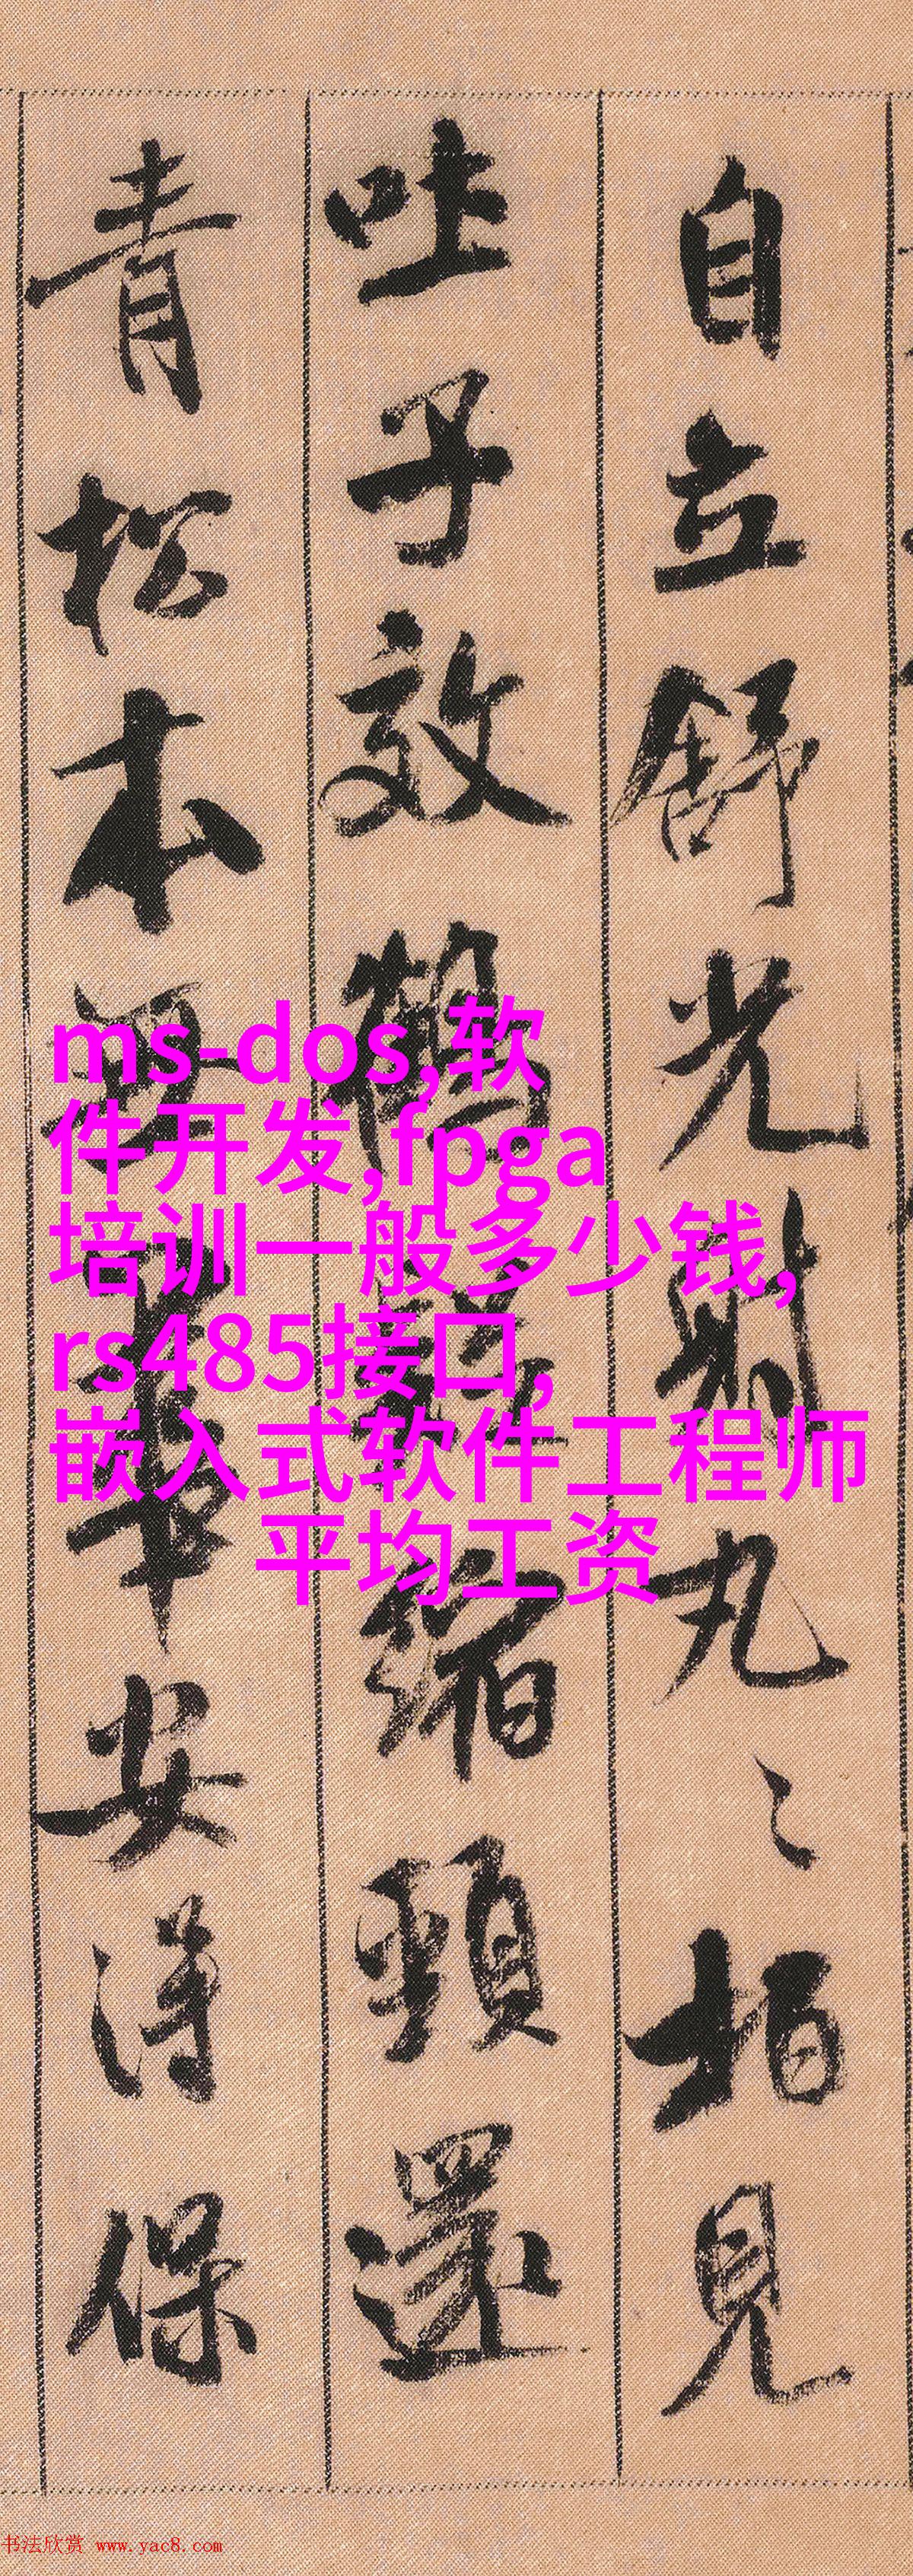 自立舒光射丸〻柏見
吐子效鶴疑縮頸還
青松本無華安得保
ms-dos,软
件开发,fpga
培训一般多少钱,
rs485接口,
嵌入式软件工程师
平均工资
书法欣赏 www.yac8.com